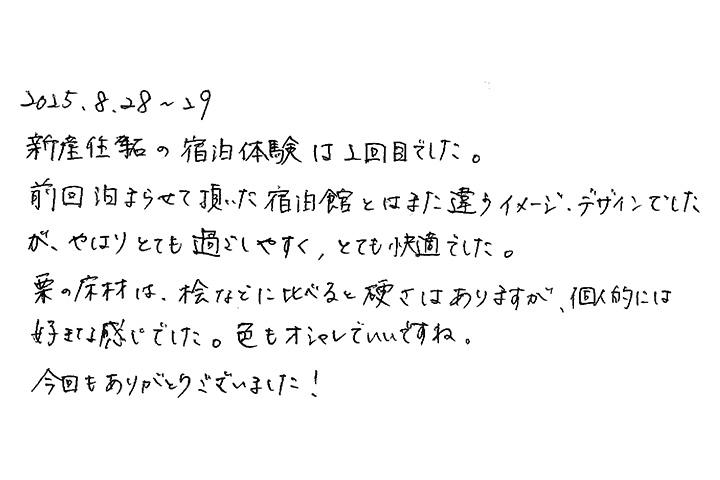 2025.8.28～29
新産住拓の宿泊体験は2回目でした。
前回泊まらせて頂いた宿泊館とはまた違うイメージ、デザインでした
が、やはりとても過ごしやすく、とても快適でした。
栗の床材は、桧などに比べると硬さはありますが、個人的には
好きな感じでした。色もオシャレでいいですね。
今回もありがとうございました！